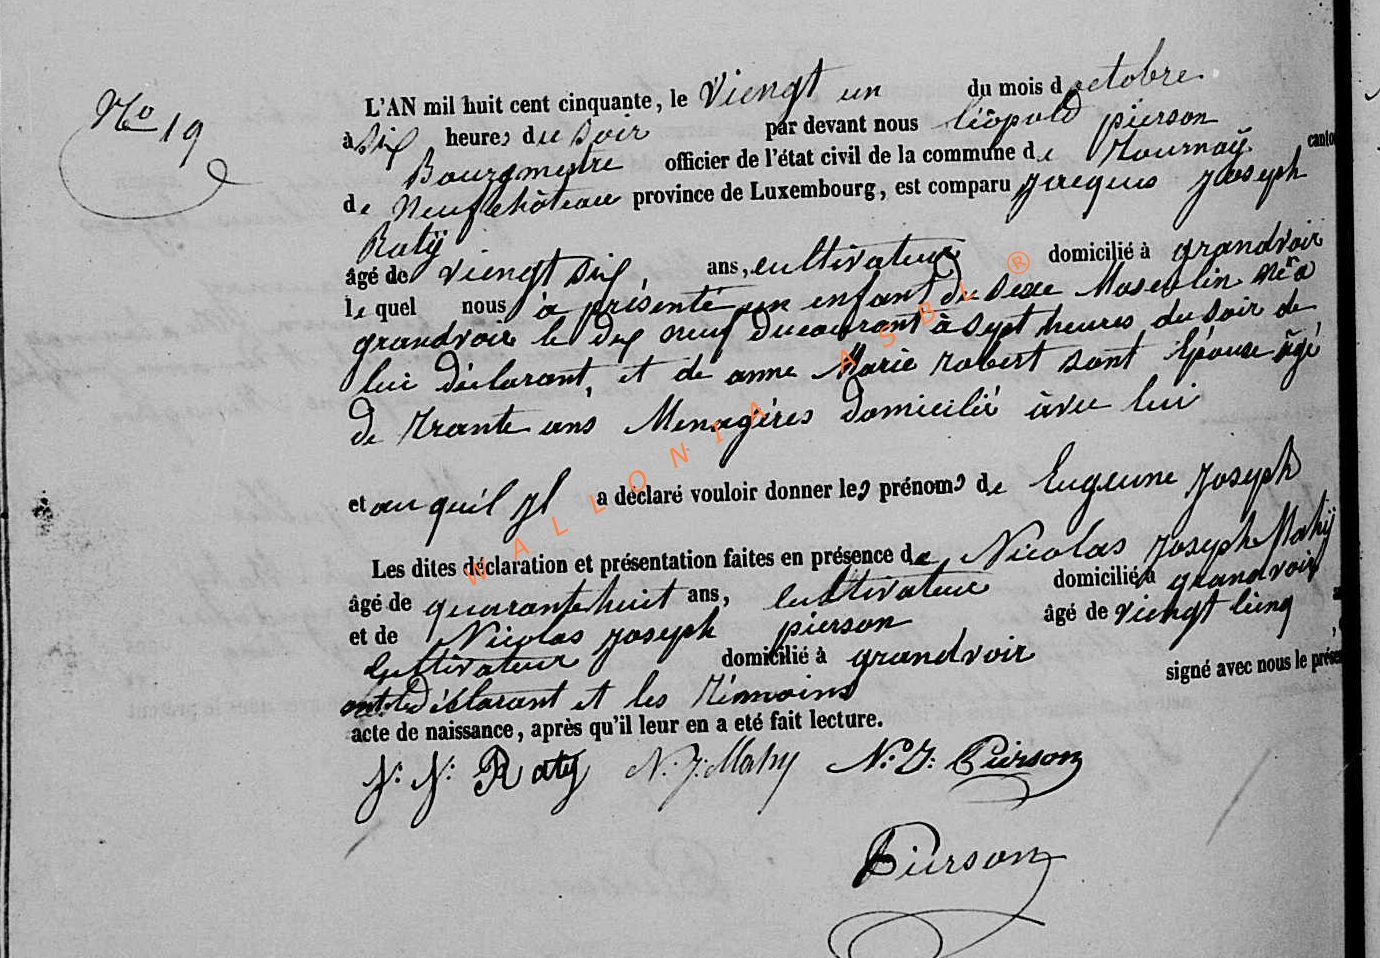 No 19
L'AN mil huit cent cinquante, le viengt un du mois d octobre
à six heures du soir par devant nous léopold pierson
Bourgmestre officier de l'état civil de la commune de tournaÿ canto
de Neufchâteau province de Luxembourg, est comparu Jacques Joseph
Ratÿ
âgé de viengt six ans, cultivateur domicilié à grandvoir
le quel nous à présenté un enfant du sexe Masculin né a
grandvoir le dix neuf du courant à sept heures du soir de
lui déclarant, et de anne Marie robert sont épouse âgé
de trante ans Menagéres domicilié àvec lui
et au quil il a déclaré vouloir donner les prénoms de Eugeune Joseph
Les dites déclaration et présentation faites en présence de Nicolas Joseph Mahÿ
âgé de quarante huit ans, cultivateur domicilié à grandvoir
et de Nicolas Joseph pierson âgé de viengt cinq
cultivateur domicilié à grandvoir signé avec nous le prése
ont le déclarant et les témoins
acte de naissance, après qu'il leur en a eté fait lecture.
J. J. Raty N. J. Mahy N. J. Pierson
Pierson
WALLONIA ASBL ®